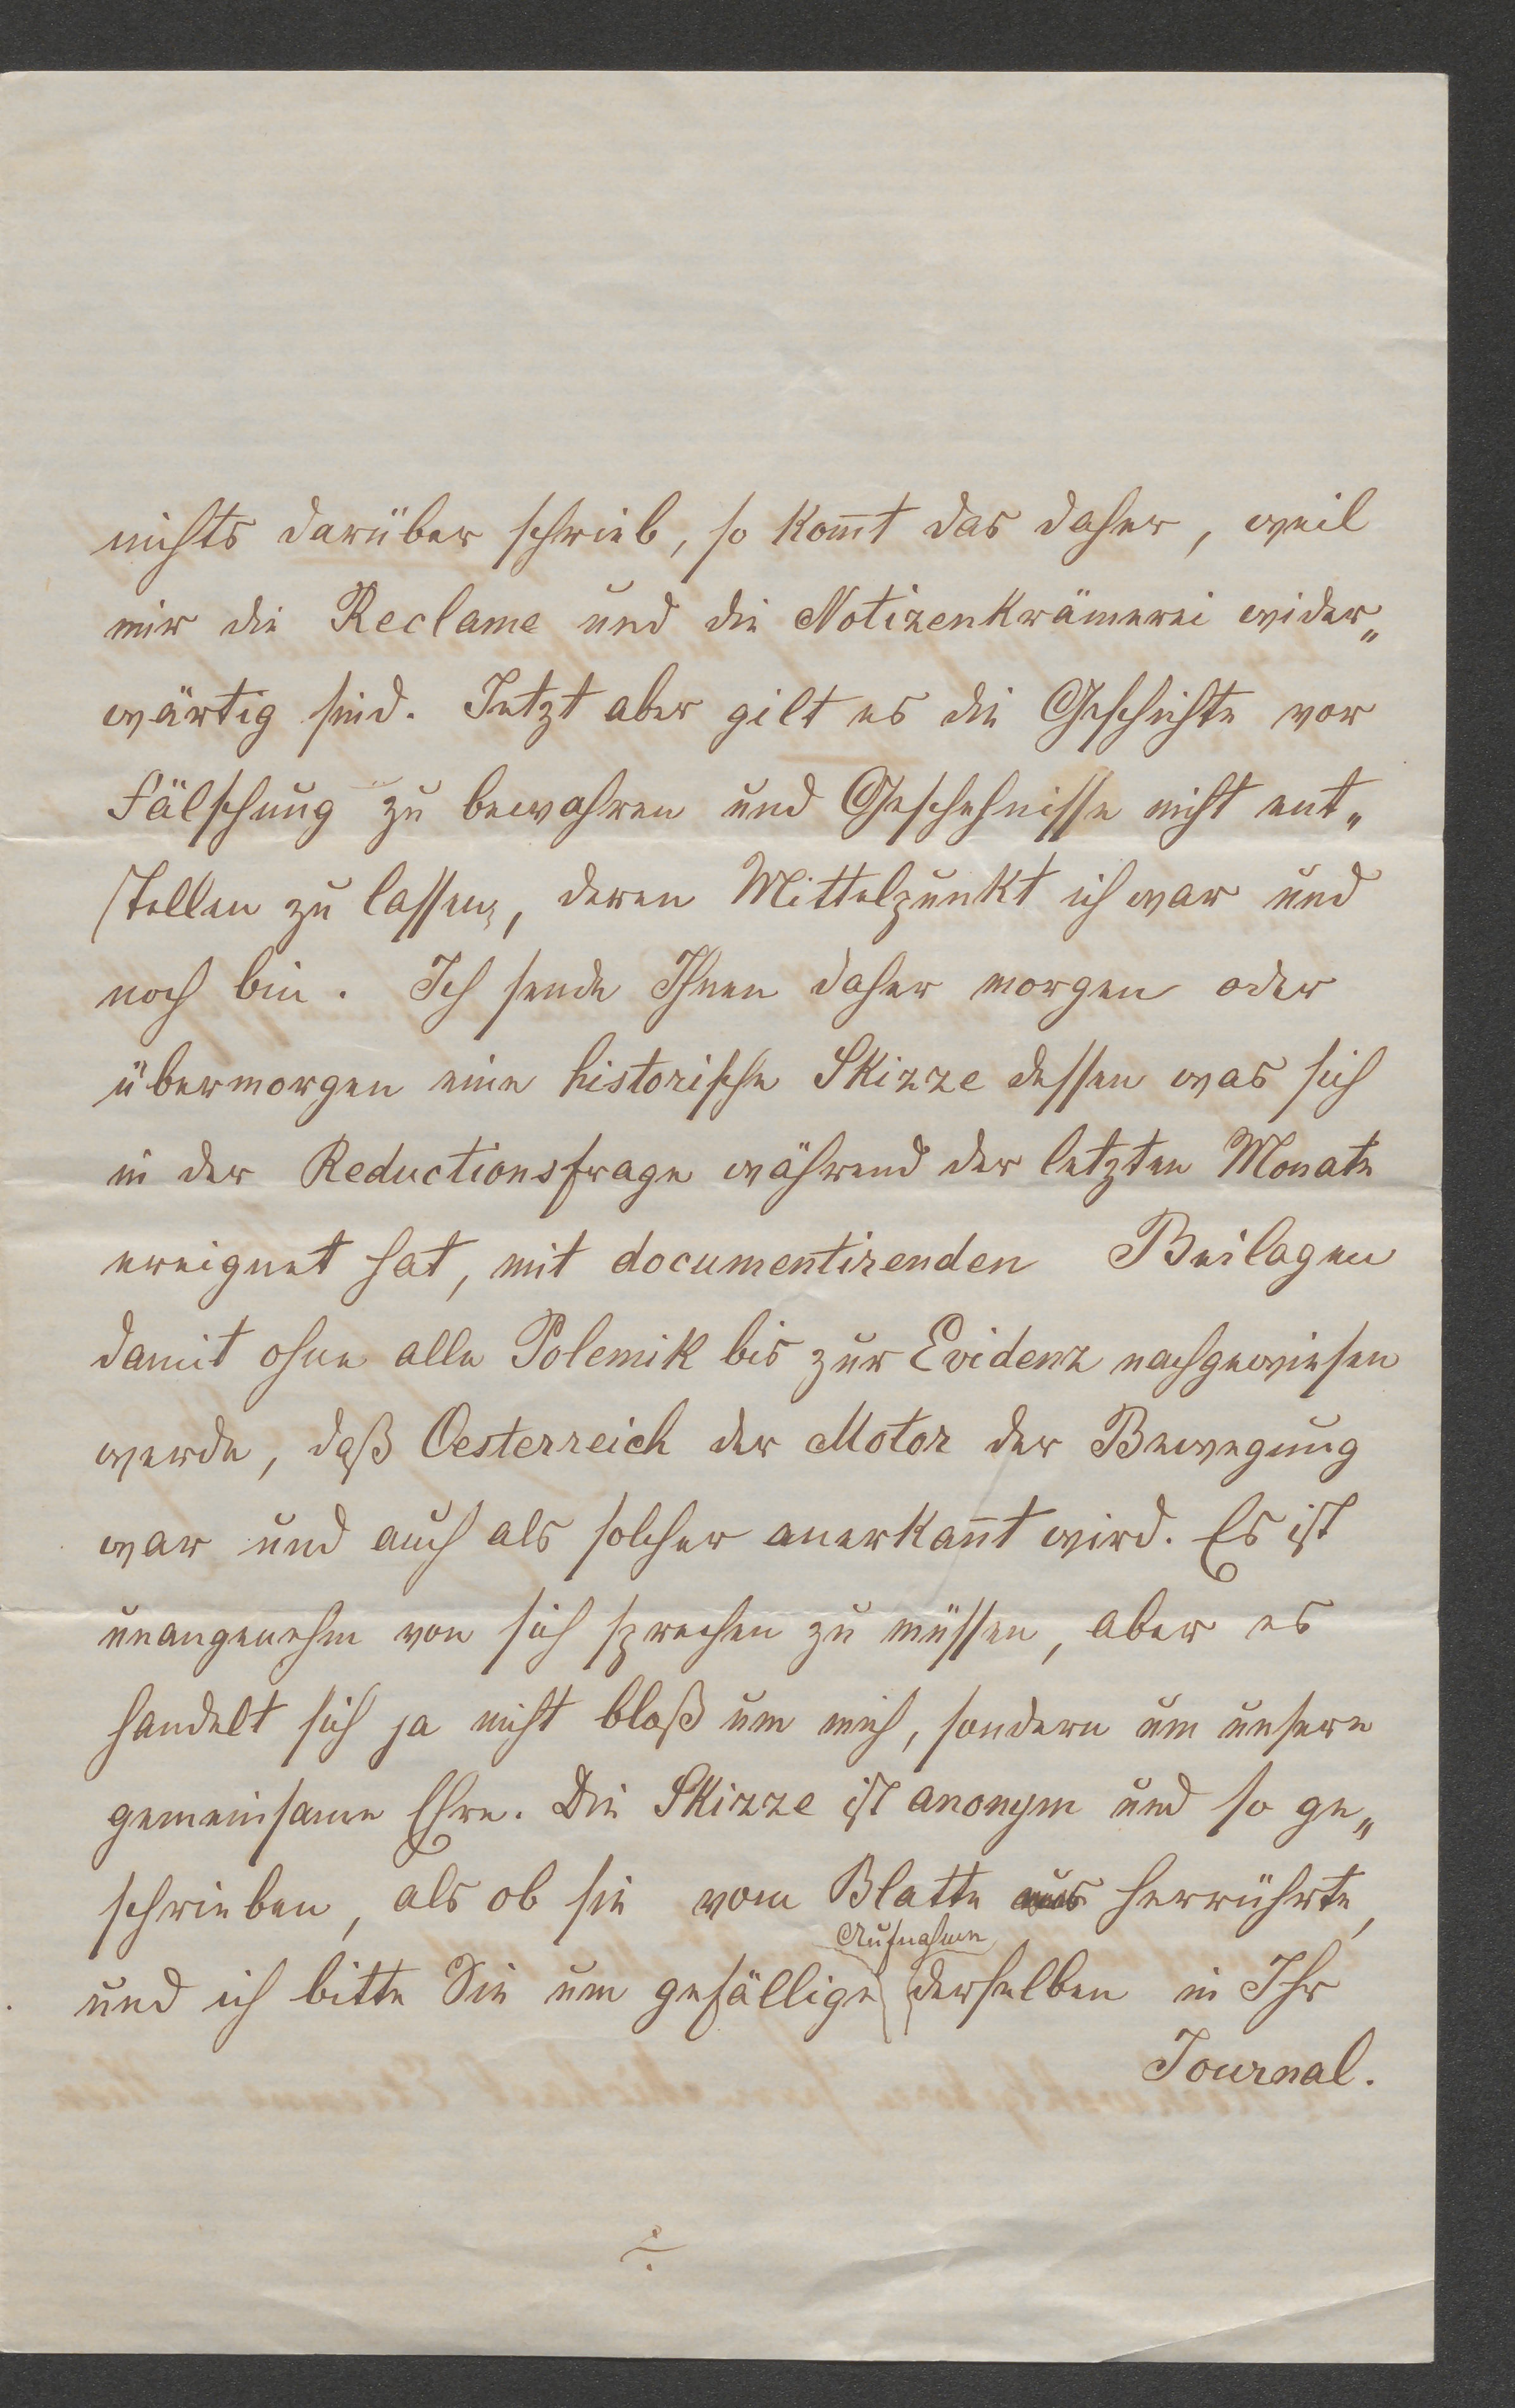 nichts darüber schrieb, so kom̅t das daher, weil
mir die Reclame und die Notizenkrämerei wider„
wärtig sind. Jetzt aber gilt es die Geschichte vor
Fälschung zu bewahren und Geschehnisse nicht ent„
stellen zu lassen, deren Mittelpunkt ich war und
noch bin. Ich sende Ihnen daher morgen oder
übermorgen eine historische Skizze dessen was sich
in der Reductionsfrage während der letzten Monate
ereignet hat, mit documentirenden Beilagen
damit ohne alle Polemik bis zur Evidenz nachgewiesen
werde, daß Oesterreich der Motor der Bewegung
war und auch als solcher anerkan̅t wird. Es ist
unangenehm von sich sprechen zu müssen, aber es
handelt sich ja nicht bloß um mich, sondern um unsere
gemeinsame Ehre. Die Skizze ist anonym und so ge„
schrieben, als ob sie vom Blatte aus herrührte,
Aufnahme
und ich bitte Sie um gefällige derselben in Ihr
Journal.